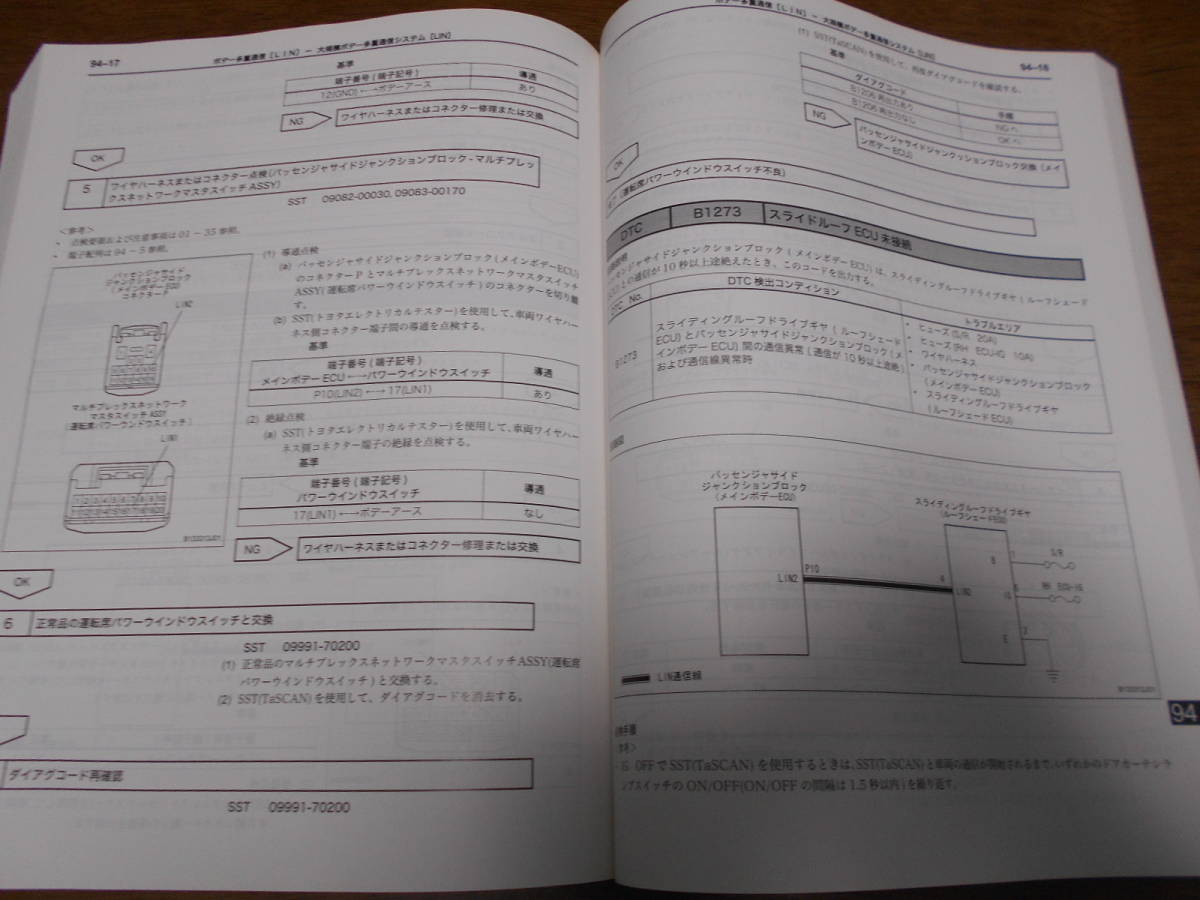 94-17
ボデー多重通信 [LIN] - 大規模ボデー多重通信システム [LIN]
基準
端子番号 (端子記号)
導通
12(GND) ←→ボデーアース
あり
NG
ワイヤハーネスまたはコネクター修理または交換
OK
5
ワイヤハーネスまたはコネクター点検(パッセンジャサイドジャンクションブロック-マルチプレッ
クスネットワークマスタスイッチASSY)
SST 09082-00030, 09083-00170
<参考>
・ 点検要領および注意事項は 01 - 35 参照。
・ 端子配列は 94 - 5 参照。
パッセンジャサイド
ジャンクションブロック
(メインボデー ECU)
コネクターP
LIN2
マルチプレックスネットワーク
マスタスイッチ ASSY
(運転席パワーウンドウスイッチ)
LIN1
(1) 導通点検
(a) パッセンジャサイドジャンクションブロック(メインボデーECU)
のコネクターPとマルチプレックスネットワークマスタスイッチ
ASSY(運転席パワーウインドウスイッチ)のコネクターを切り離
す。
(b) SST(トヨタエレクトリカルテスター)を使用して、車両ワイヤハー
ネス側コネクター端子間の導通を点検する。
基準
端子番号 (端子記号)
メインボデー ECU ←→パワーウインドウスイッチ
導通
P10(LIN2) ←→ 17(LIN1)
あり
(2) 絶縁点検
(a) SST(トヨタエレクトリカルテスター)を使用して、車両ワイヤハー
ネス側コネクター端子の絶縁を点検する。
基準
端子番号 (端子記号)
パワーウインドウスイッチ
導通
17(LIN1) ←→ボデーアース
なし
NG
ワイヤハーネスまたはコネクター修理または交換
OK
6
正常品の運転席パワーウインドウスイッチと交換
SST 09991-70200
(1) 正常品のマルチプレックスネットワークマスタスイッチASSY(運転席
パワーウインドウスイッチ)と交換する。
(2) SST(TaSCAN)を使用して、ダイアグコードを消去する。
ダイアグコード再確認
SST 09991-70200
ボデー多重通信 [LIN] - 大規模ボデー多重通信システム [LIN]
94-18
(1) SST(TaSCAN)を使用して、再度ダイアグコードを確認する。
基準
ダイアグコード
手順
B1206 再出力あり
NGへ
B1206 再出力なし
OKへ
NG
パッセンジャサイドジャンクッションブロック交換 (メイ
ンボデーECU)
OK
(運転席パワーウインドウスイッチ不良)
DTC
B1273
スライドルーフ ECU 未接続
ッセンジャサイドジャンクションブロック (メインボデーECU) は、スライディングルーフドライブギヤ (ルーフシェード
ECU) との通信が10秒以上途絶えたとき、このコードを出力する。
DTC No.
DTC 検出コンディション
トラブルエリア
B1273
スライディングルーフドライブギヤ (ルーフシェード
ECU) とパッセンジャサイドジャンクションブロック (メ
インボデーECU) 間の通信異常 (通信が10秒以上途絶)
および通信線異常時
・ ヒューズ (S/R 20A)
・ ヒューズ (RH ECU-IG 10A)
・ ワイヤハーネス
・ パッセンジャサイドジャンクションブロック
(メインボデーECU)
・ スライディングルーフドライブギヤ
(ルーフシェードECU)
パッセンジャサイド
ジャンクションブロック
(メインボデーECU)
スライディングルーフドライブギヤ
(ルーフシェードECU)
LIN2
P10
4
LIN2
B
1
S/R
IG
5
RH ECU-IG
E
2
LIN通信線
94
IG OFFでSST(TaSCAN)を使用するときは、SST(TaSCAN)と車両の通信が開始されるまで、いずれかのドアカーテシラ
ンプスイッチのON/OFF(ON/OFFの間隔は1.5秒以内)を繰り返す。